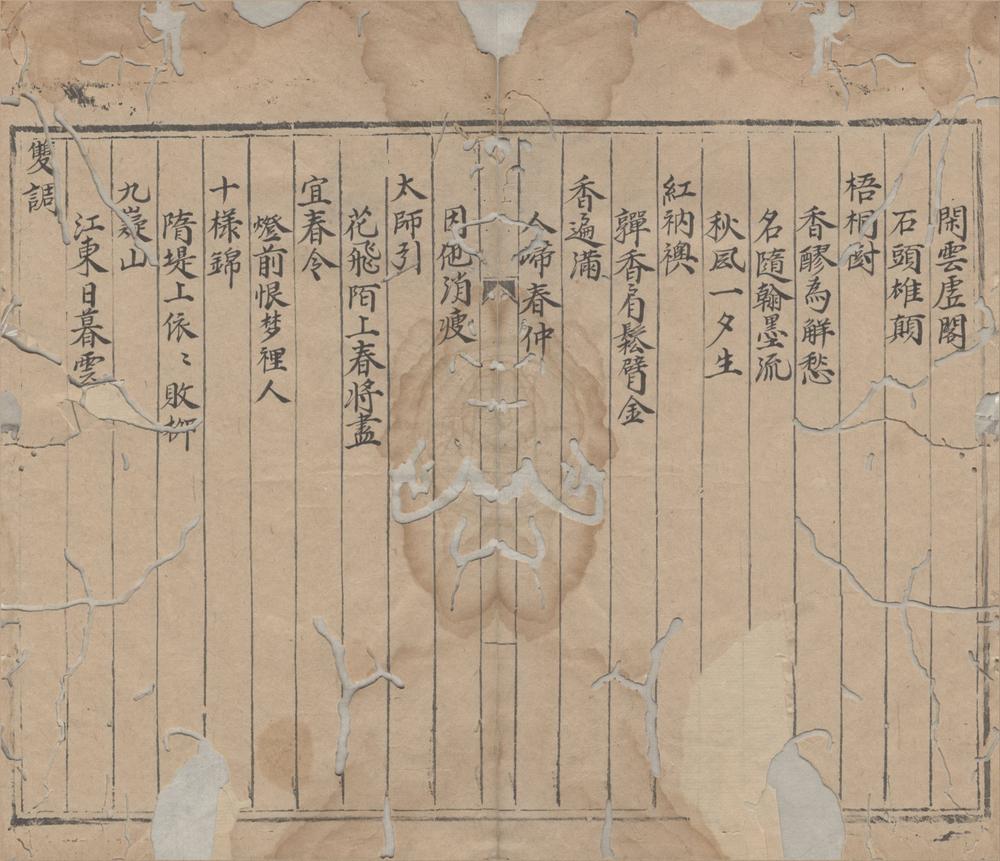 閑雲虛閣
石頭雄顛
梧桐樹
香醪為解愁
名隨翰墨流
秋風一夕生
紅衲襖
嚲香肩鬆臂金
香遍滿
啼春仲
因他消瘦
太師引
花飛陌上春將盡
宜春令
燈前恨梦裡人
十樣錦
隋堤上依〻敗柳
九嶷山
江東日暮雲
雙調